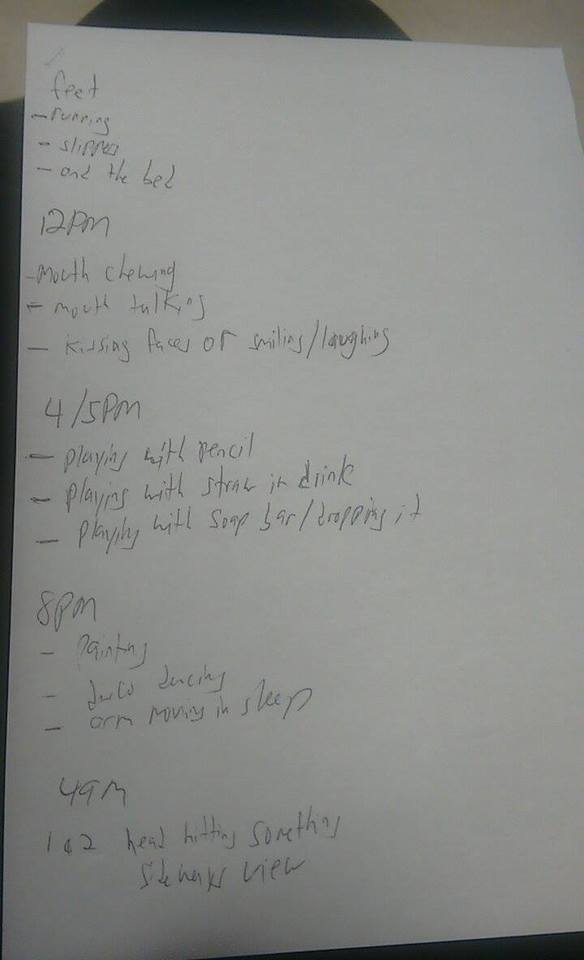 feet
- running
- slippers
- and the bed
12PM
- mouth chewing
- mouth talking
- kissing faces or smiling/laughing
4/5PM
- playing with pencil
- playing with straw in drink
- playing with soap bar/dropping it
8PM
- Painting
- dancing
- arm moving in sleep
4AM
1 & 2 head hitting something
sideways view